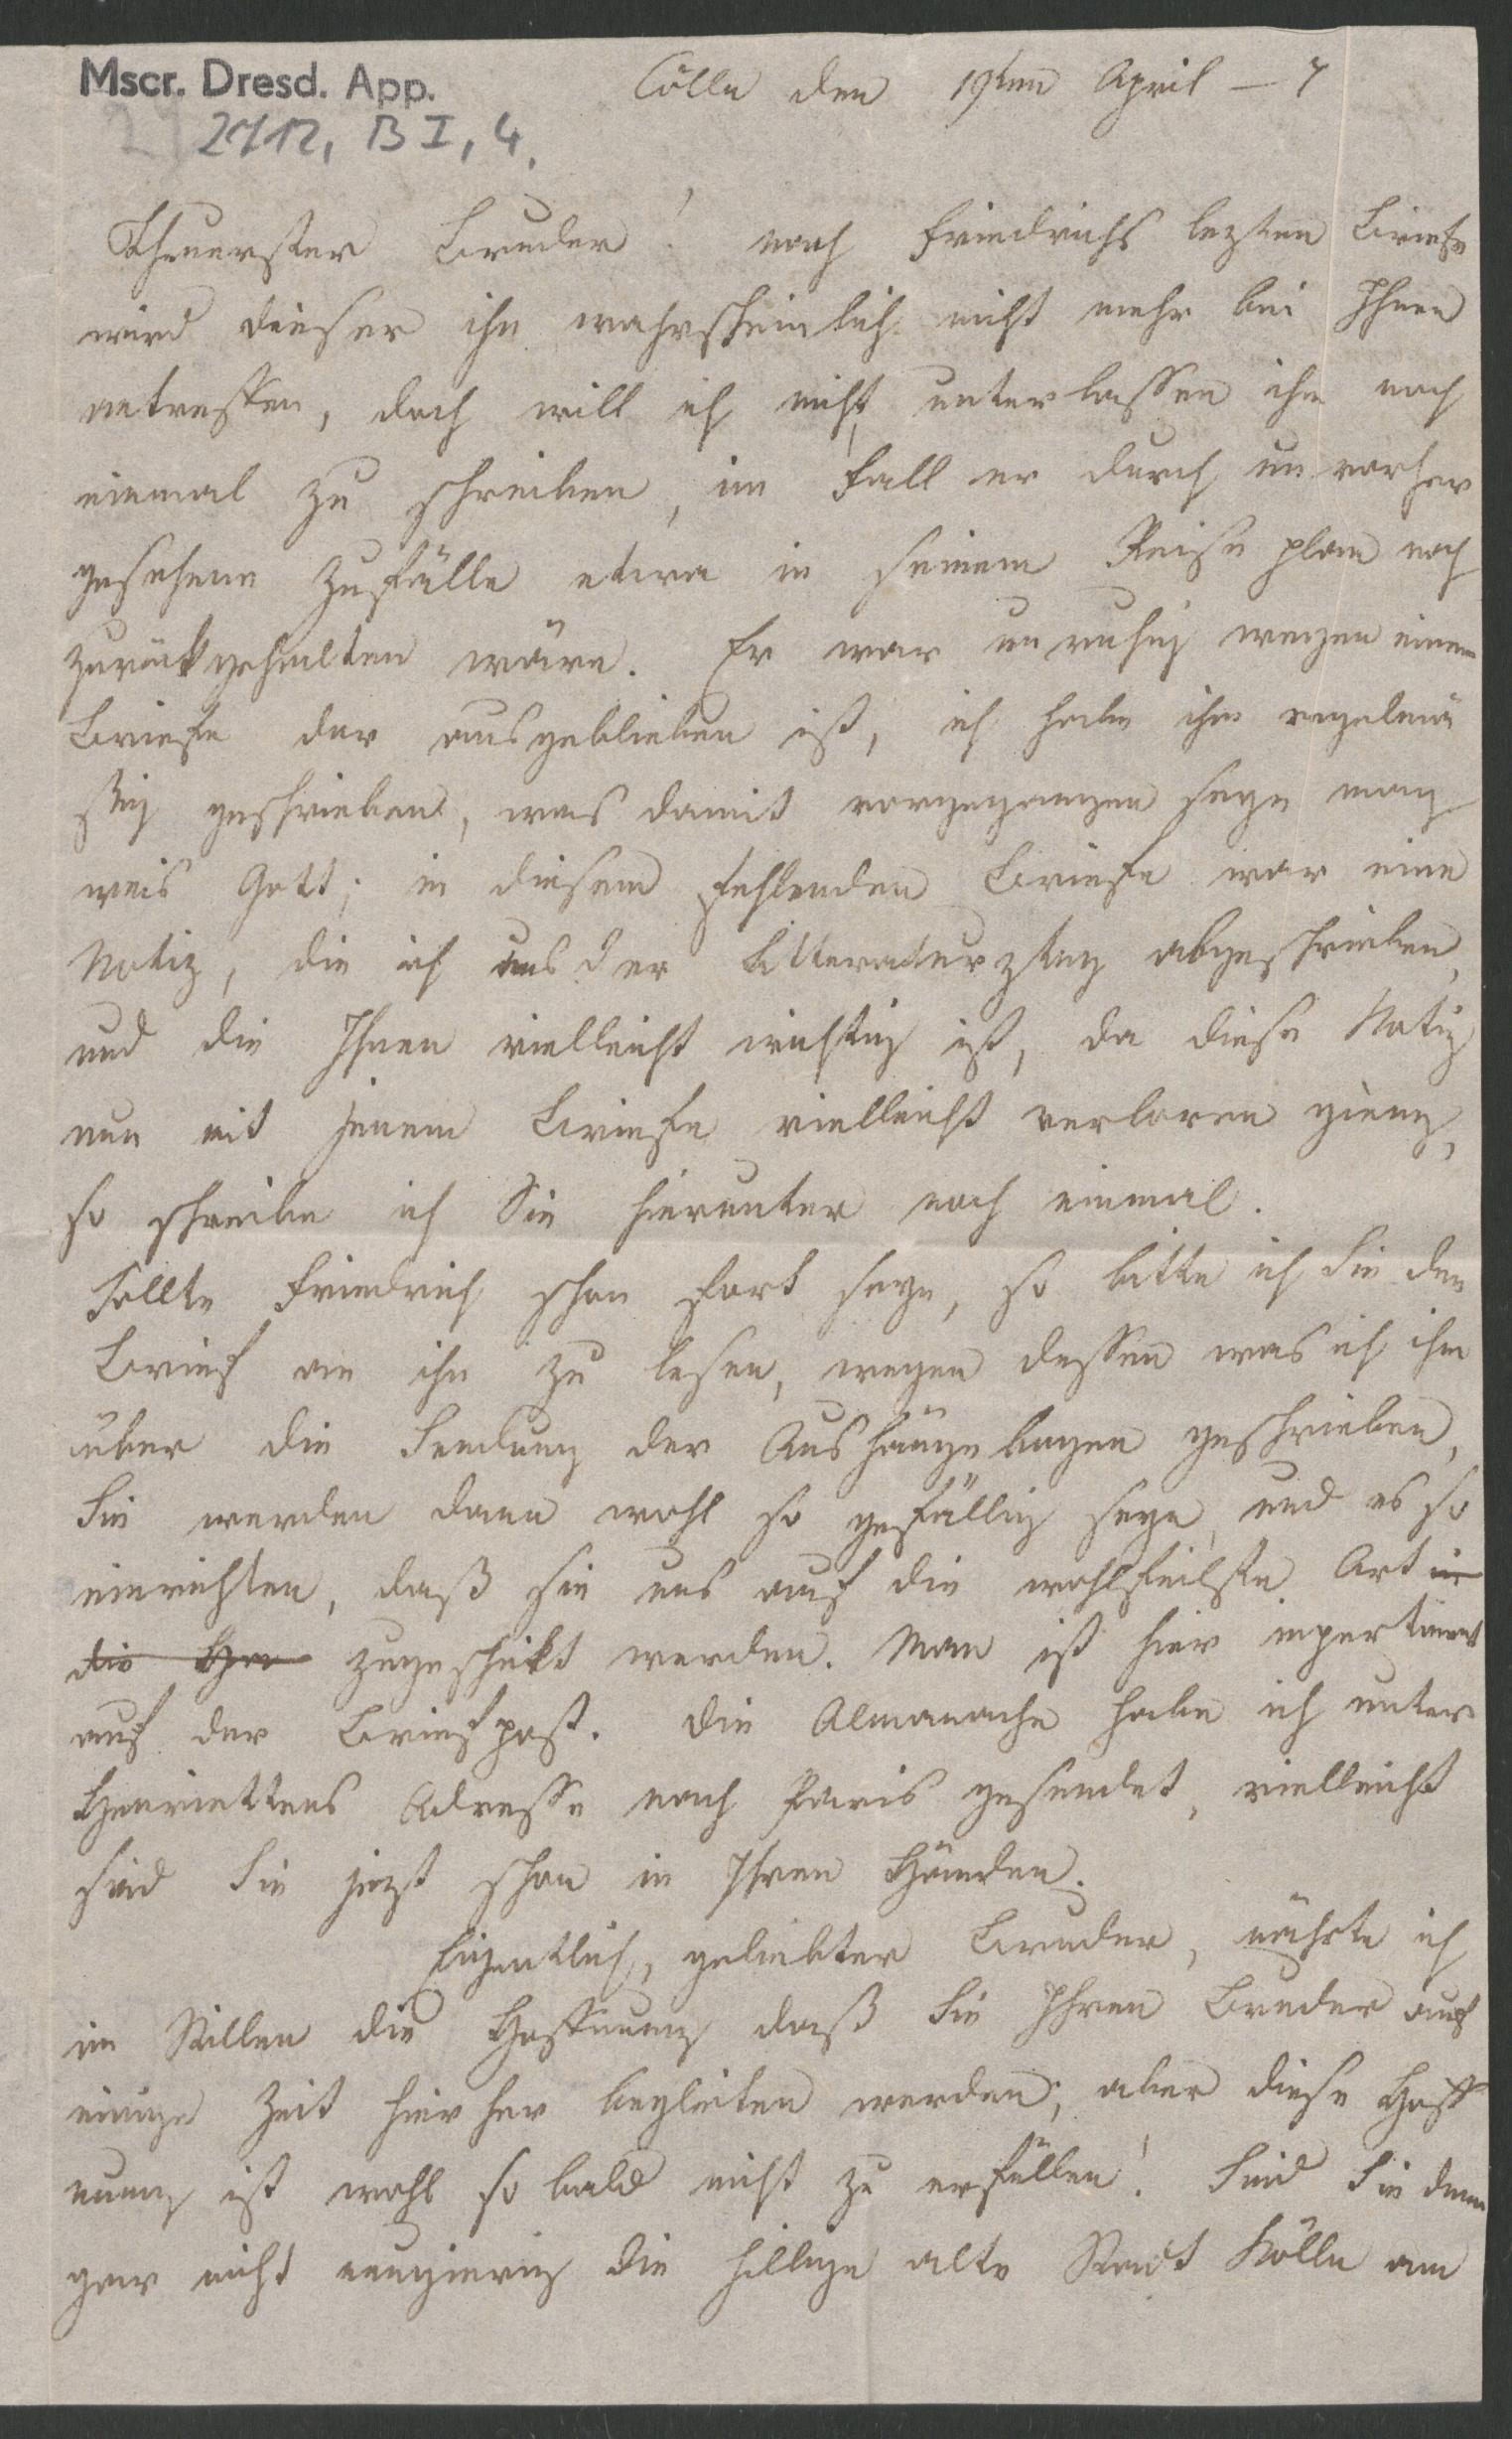 Mscr. Dresd. App.
2712, B I, 4.
Cölln den 19ten April – 7
Theuerster Bruder! nach Friedrichs lezten Briefe
wird dieser ihn wahrscheinlich nicht mehr bei Ihnen
antreffen, doch will ich nicht unterlassen ihm noch
einmal zu schreiben, im Fall er durch unvorher
gesehene Zufälle etwa in seinem Reise plan noch
zurückgehalten wäre. Er war unruhig wegen einem
Briefe der ausgeblieben ist, ich habe ihm regelmä
ßig geschrieben, was damit vorgegangen seyn mag
weis Gott; in diesem fehlenden Briefe war eine
Notiz, die ich aus der Litteraturztng abgeschrieben,
und die Ihnen vielleicht wichtig ist, da diese Notiz
nun mit jenem Briefe vielleicht verloren gieng,
so schreibe ich Sie hierunter noch einmal.
Sollte Friedrich schon fort seyn, so bitte ich Sie den
Brief an ihn zu lesen, wegen dessen was ich ihm
über die Sendung der Aushängebogen geschrieben,
Sie werden dann wohl so gefällig seyn, und es so
einrichten, daß sie uns auf die wohlfeilste Art in
die zugeschickt werden. Man ist hier impertinent
auf der Briefpost. Die Almanache habe ich unter
Henriettens Adresse nach Paris gesendet, vielleicht
sind Sie jezt schon in Ihren Händen.
Eigentlich, geliebter Bruder, nährte ich
im Stillen die Hoffnung daß Sie Ihren Bruder auf
einige Zeit hierher begleiten werden; aber diese Hoff
nung ist wohl so bald nicht zu erfüllen! Sind Sie denn
gar nicht neugierig die hillige alte Stadt Kölln am